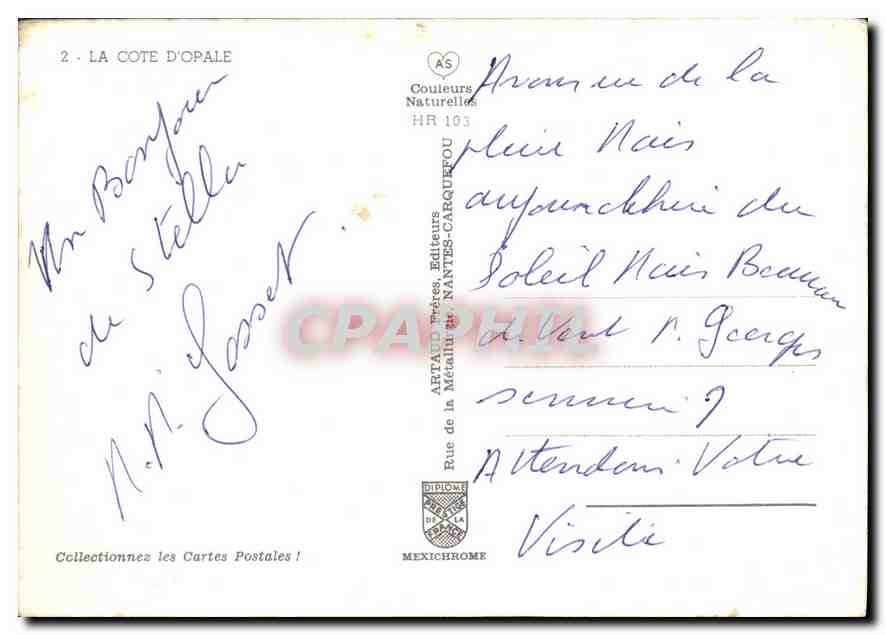 2 - LA COTE D'OPALE
Un Bonjour
de Stella
M. M. Gosset
Collectionnez les Cartes Postales !
AS
Couleurs
Naturelles
HR 103
ARTAUD Frères, Editeurs
Rue de la Métallurgie, NANTES-CARQUEFOU
DIPLOME
PRESTIGE
DE LA
FRANCE
MEXICHROME
de la
pluie Mais
aujourd'hui du
Soleil Mais Beaucoup
de Vent Georges
Attendons Votre
Visite
CPAPHIL